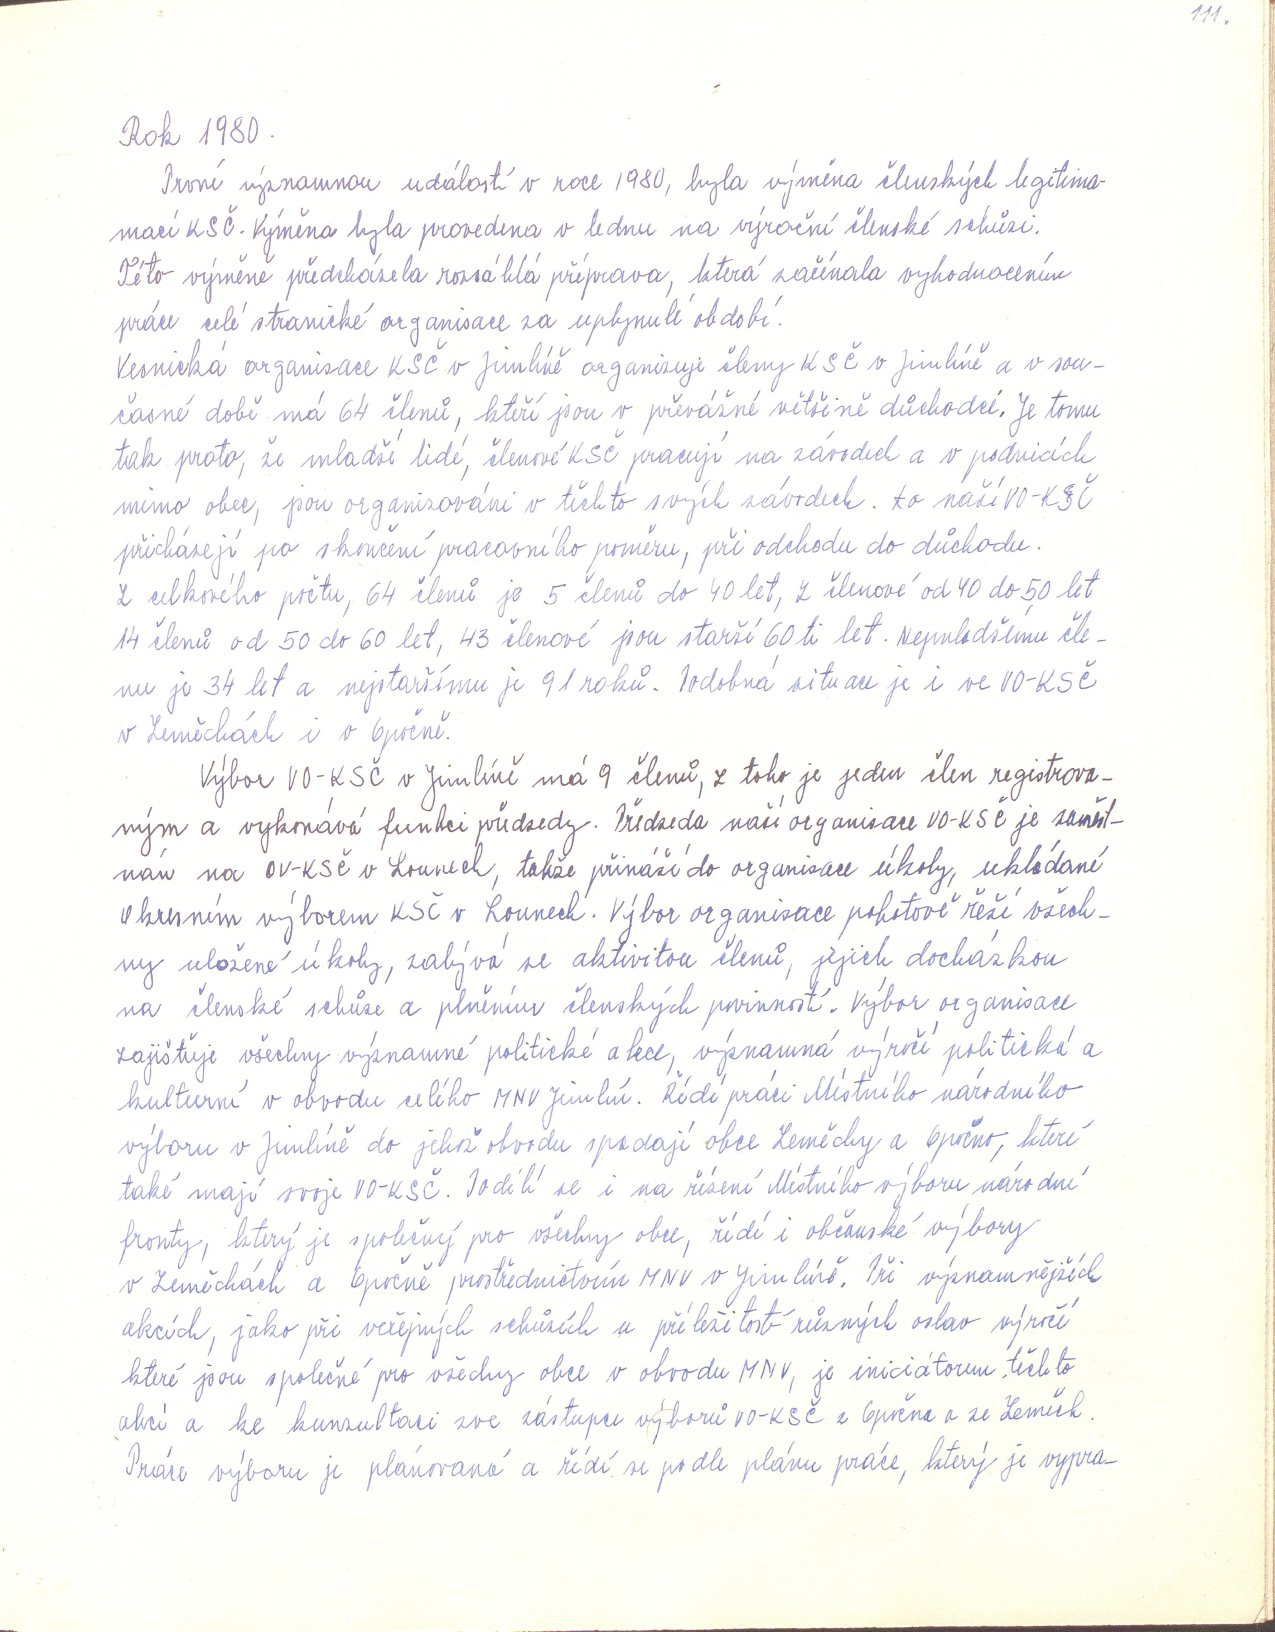 111.
Rok 1980.
První významnou událostí v roce 1980, byla výměna členských legitima-
mací KSČ. Výměna byla provedena v lednu na výroční členské schůzi.
Této výměně předcházela rozsáhlá příprava, která začínala vyhodnocením
práce celé stranické organisace za uplynulé období.
Vesnická organisace KSČ v Jimlíně organisuje členy KSČ v Jimlíně a v sou-
časné době má 64 členů, kteří jsou v převážné většině důchodci. Je tomu
tak proto, že mladší lidé, členové KSČ pracují na závodech a v podnicích
mimo obec, jsou organizováni v těchto svých závodech. Do naší VO-KSČ
přicházejí po skončení pracovního poměru, při odchodu do důchodu.
Z celkového počtu, 64 členů je 5 členů do 40 let, 2 členové od 40 do 50 let
14 členů od 50 do 60 let, 43 členové jsou starší 60 ti let. Nejmladšímu čle-
nu je 34 let a nejstaršímu je 91 roků. Podobná situace je i ve VO-KSČ
v Zeměchách i v Opočně.
Výbor VO-KSČ v Jimlíně má 9 členů, z toho je jeden člen registrova-
ným a vykonává funkci předsedy. Předseda naší organisace VO-KSČ je zaměst-
nán na OV-KSČ v Lounech, takže přináší do organisace úkoly, ukládané
Okresním výborem KSČ v Lounech. Výbor organisace pohotově řeší všech-
ny uložené úkoly, zabývá se aktivitou členů, jejich docházkou
na členské schůze a plněním členských povinností. Výbor organisace
zajišťuje všechny významné politické akce, významná výročí politická a
kulturní v obvodu celého MNV Jimlín. Řídí práci Místního národního
výboru v Jimlíně do jehož obvodu spadají obce Zeměchy a Opočno, které
také mají svoje VO-KSČ. Podílí se i na řízení Místního výboru národní
fronty, který je společný pro všechny obce, řídí i občanské výbory
v Zeměchách a Opočně prostřednictvím MNV v Jimlíně. Při významnějších
akcích, jako při veřejných schůzích u příležitostí různých oslav výročí
které jsou společné pro všechny obce v obvodu MNV, je iniciátorem těchto
akcí a ke konzultaci zve zástupce výborů VO-KSČ z Opočna a ze Zeměch.
Práce výboru je plánovaná a řídí se podle plánu práce, který je vypra-